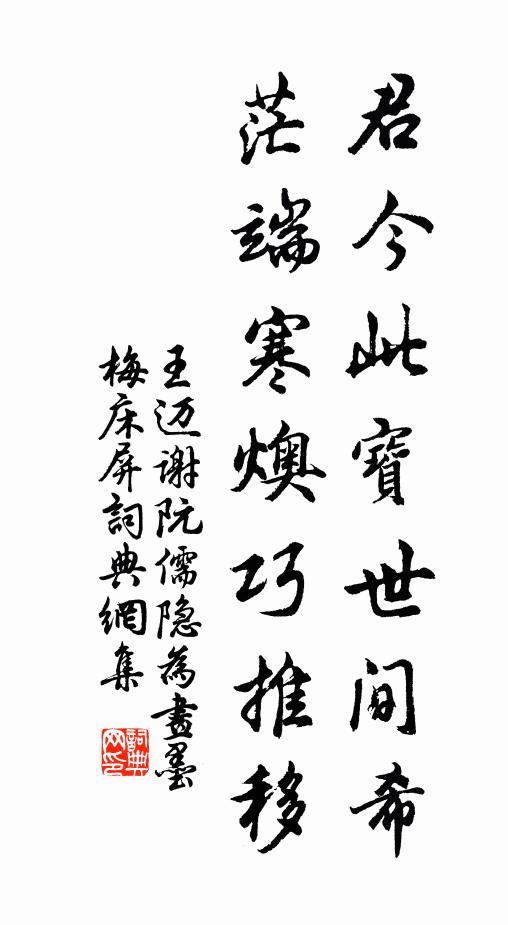 君今此寶世間希
茫端寒燠巧推移
王迈谢阮儒隐為畫墨
梅床屏詞典網集
詞典網印